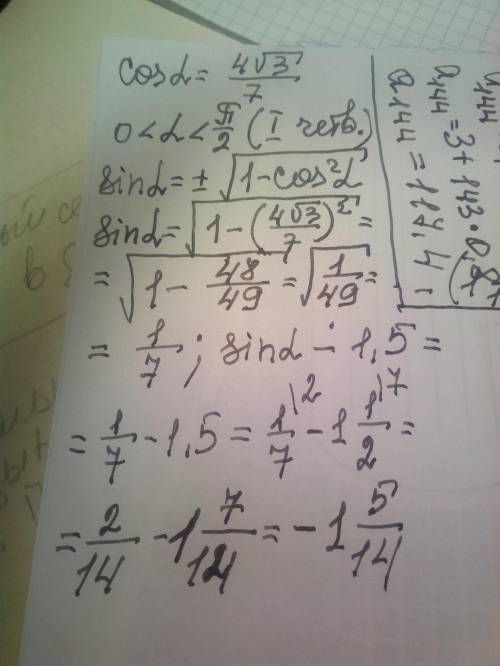 cosα = 4√3/7
0 < α < π/2 (I четв.)
sinα = ± √(1 - cos²α)
sinα = √(1 - (4√3/7)²) =
= √(1 - 48/49) = √(1/49) =
= 1/7 ; sinα - 1,5 =
= 1/7 - 1,5 = 1/7 \2 - 1 1/2 \7 =
= 2/14 - 1 7/14 = - 1 5/14
a144 = 3 + 143 · 0,8
a144 = 117,4